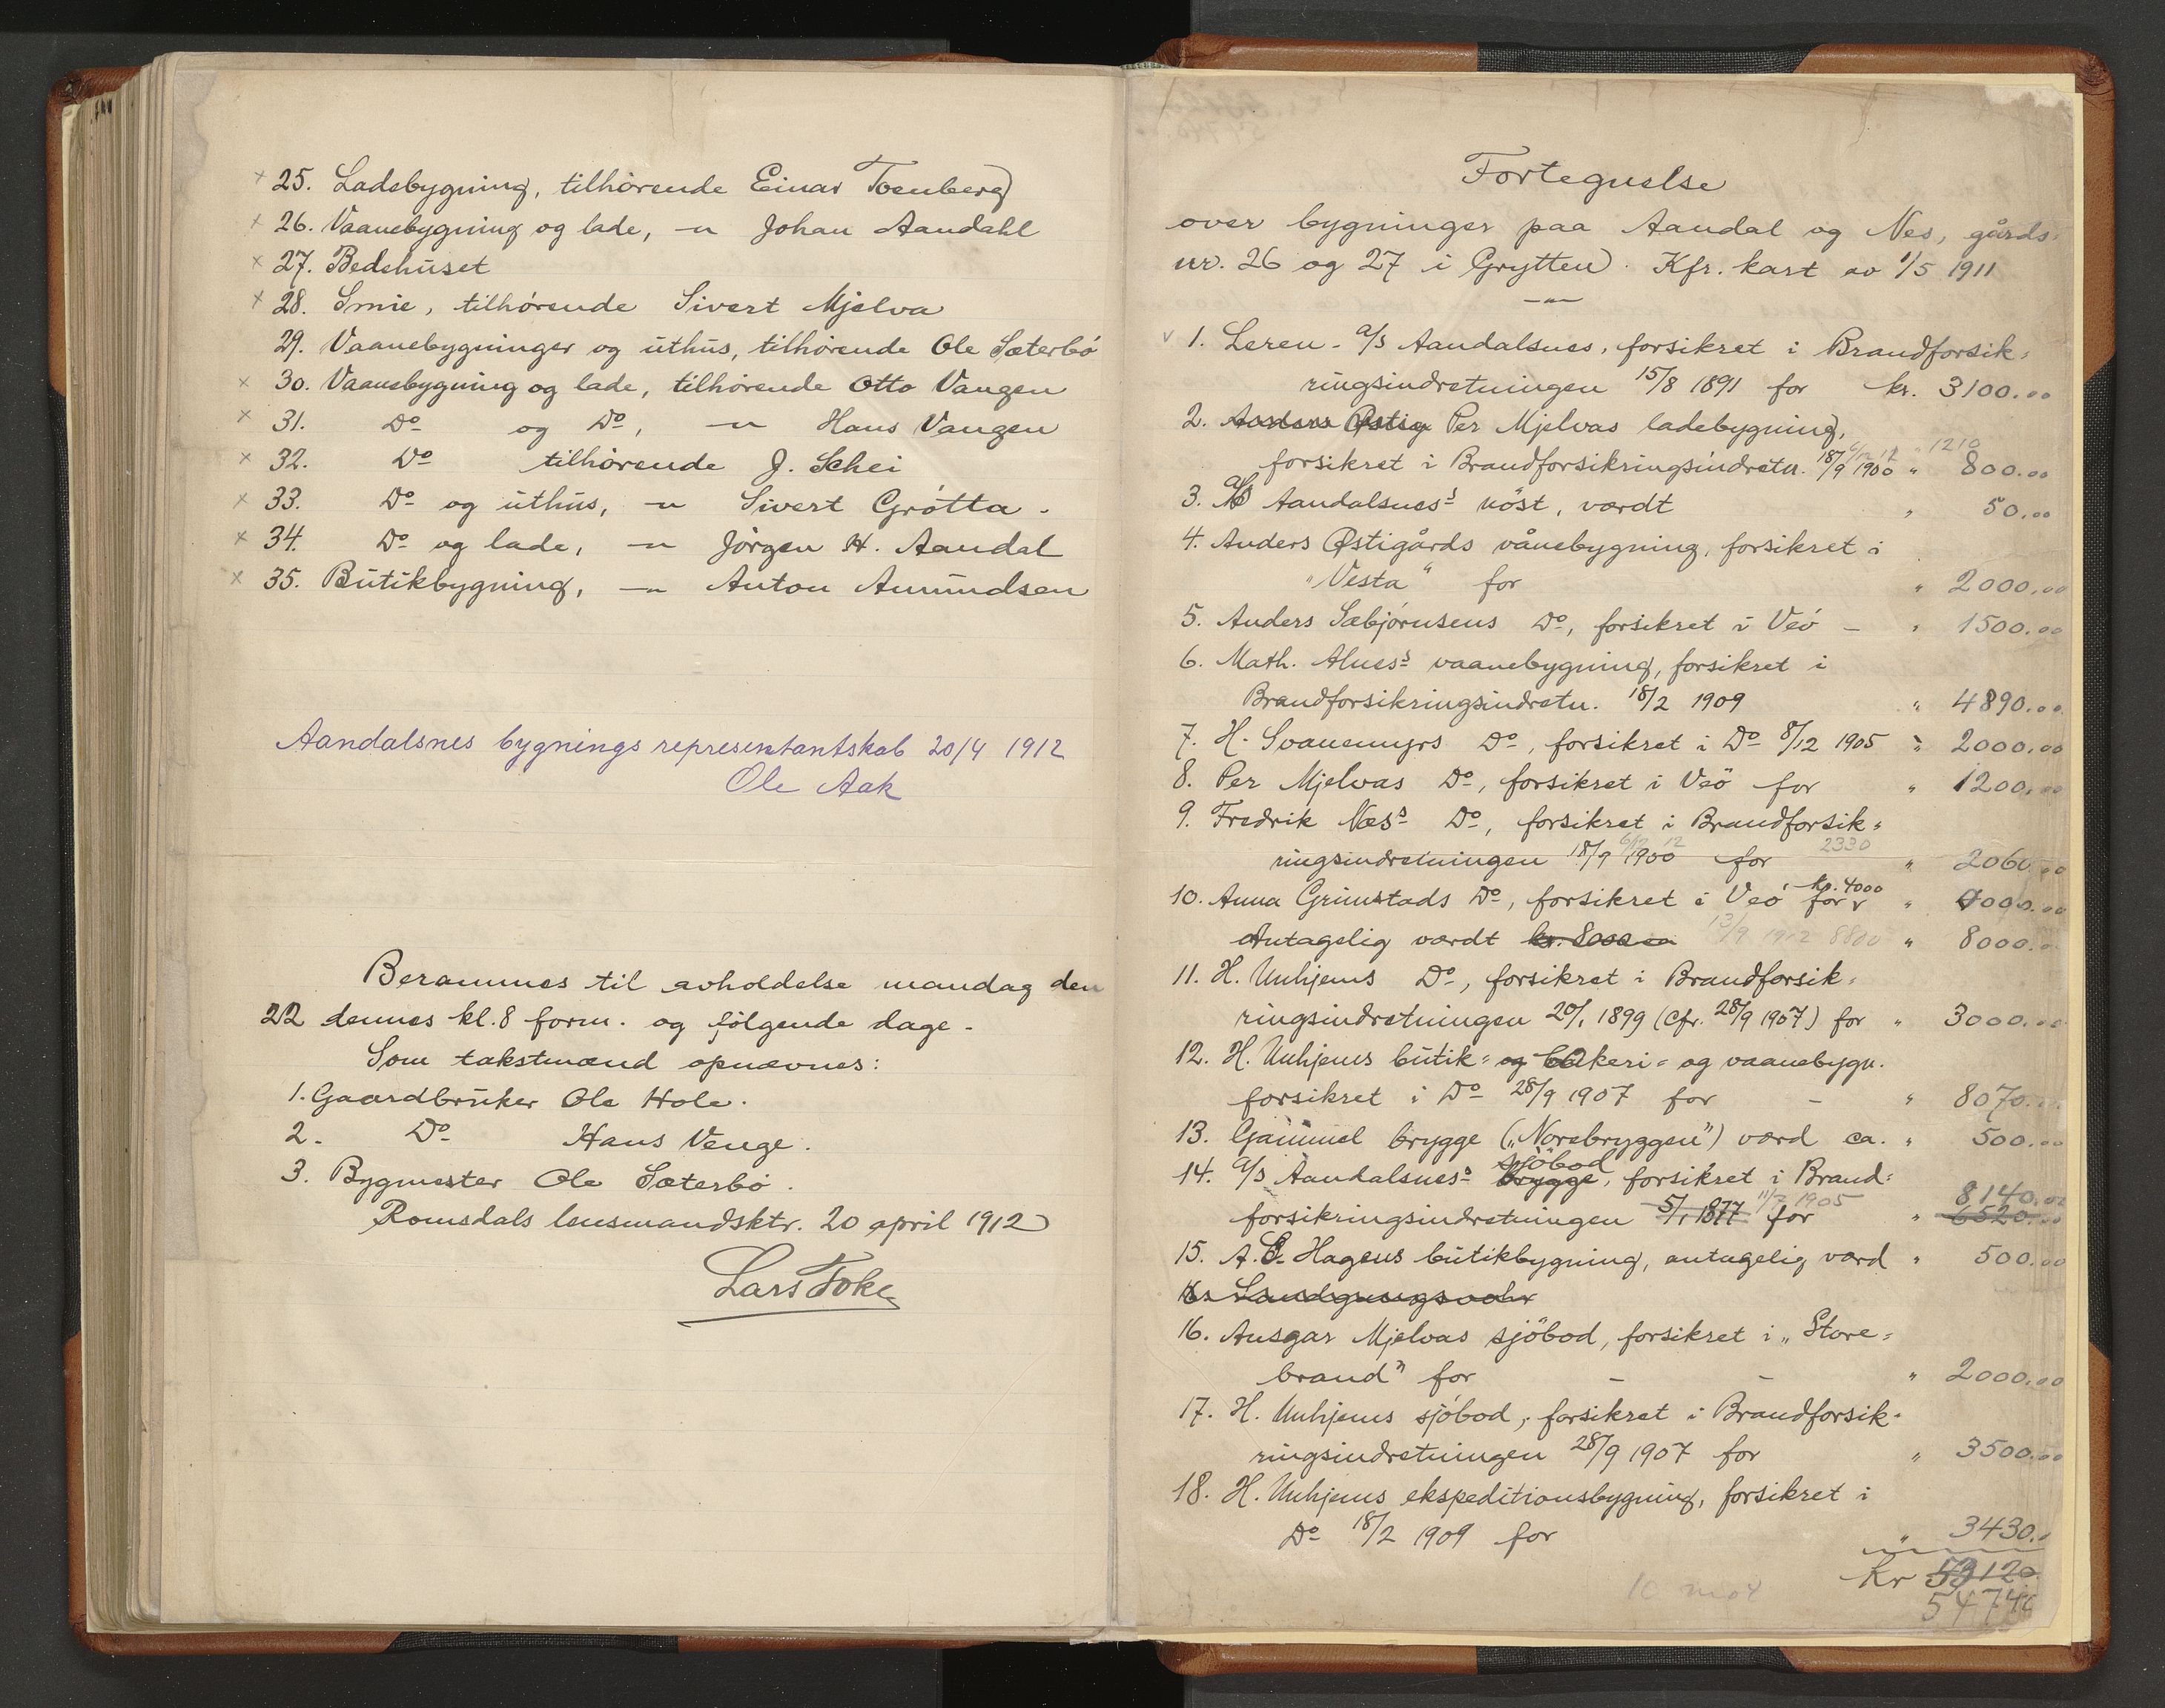 × 25. Ladebygning, tilhörende Einar Tosnberg
× 26. Vaanebygning og lade, -"- Johan Aandahl
× 27. Bedehuset
× 28. Smie, tilhörende Sivert Mjelva
29. Vaanebygninger og uthus, tilhörende Ole Sæterbö
× 30. Vaanebygning og lade, tilhörende Otto Vangen
× 31. Do og Do, -"- Hans Vangen
× 32. Do tilhörende J. Schei
× 33. Do og uthus, -"- Sivert Grötta.
× 34. Do og lade, -"- Jörgen H. Aandal
× 35. Butikbygning, -"- Anton Amundsen
Aandalsnes bygnings representantskab 20/4 1912
Ole Aak
Berammes til avholdelse mandag den
22 dennes kl. 8 form. og följende dage.
Som takstmænd opnævnes:
1. Gaardbruker Ole Hole.
2. Do Hans Venge.
3. Bygmester Ole Sæterbö.
Romsdals lensmandsktr. 20 april 1912
Lars Foke
Fortegnelse
over bygninger paa Aandal og Nes, gårds=
nr. 26 og 27 i Grytten. Kfr. kart av 1/5 1911
-"-
v 1. Leren - a/s Aandalsnes, forsikret i Brandforsik=
ringsindretningen 15/8 1891 for kr. 3100.00
2. Anders Østig Per Mjelvas ladebygning,
forsikret i Brandforsikringsindretn. 18/9 1900 " 1210 800.00
3. A/S Aandalsnes's nöst, værdt " 50.00
4. Anders Østigårds vånebygning, forsikret i
"Vesta" for " 2000.00
5. Anders Sæbjörnsens Do, forsikret i Veö - " 1500.00
6. Math. Alnes's vaanebygning, forsikret i
Brandforsikringsindretn. 18/2 1909 " 4890.00
7. H. Svanemyrs Do, forsikret i Do 8/12 1905 " 2000.00
8. Per Mjelvas Do, forsikret i Veö for " 1200.00
9. Fredrik Næs's Do, forsikret i Brandforsik=
ringsindretningen 18/9 1900 for 2330 " 2060.00
10. Anna Grimstads Do, forsikret i Veö for kr. 4000 " 0000.00
Antagelig værdt kr. 8000 13/9 1912 8800 " 8000.
11. H. Unhjems Do, forsikret i Brandforsik=
ringsindretningen 20/1 1899 (cfr. 28/9 1907) for " 3000.00
12. H. Unhjems butik= og bakeri= og vaanebygn.
forsikret i Do 28/9 1907 for - " 8070.00
13. Gammel brygge ("Norebryggen") værd ca. " 500.00
14. a/s Aandalsnes's brygge sjöbod, forsikret i Brand=
forsikringsindretningen 5/1 1877 11/7 1905 for " 6520.00 8140.00
15. A. G. Hagens butikbygning, antagelig værd " 500.00
16. Ansgar Mjelvas sjöbod, forsikret i "Store=
brand" for - - " 2000.00
17. H. Unhjems sjöbod, forsikret i Brandforsik=
ringsindretningen 28/9 1907 for " 3500.00
18. H. Unhjems ekspeditionsbygning, forsikret i
Do 18/2 1909 for " 3430.
Kr 53120
54740